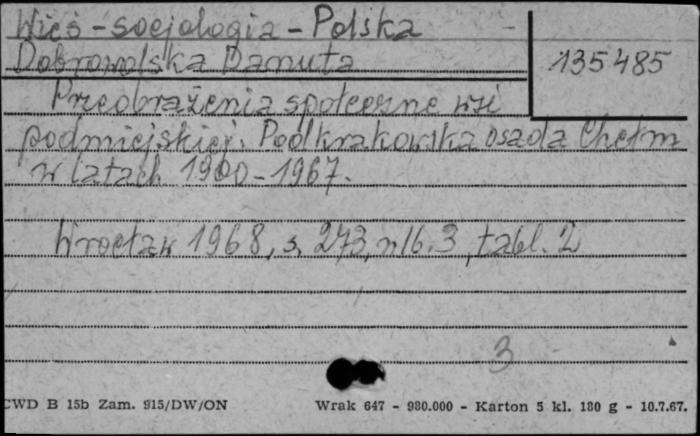 Wieś - socjologia - Polska
Dobrowolska Danuta
135485
Przeobrażenia społeczne wsi
podmiejskiej. Podkrakowska osada Chełm
w latach 1900-1967.
Wrocław 1968, s. 273, nlb. 3, tabl. 2
3
CWD B 15b Zam. 915/DW/ON
Wrak 647 - 980.000 - Karton 5 kl. 180 g - 10.7.67.